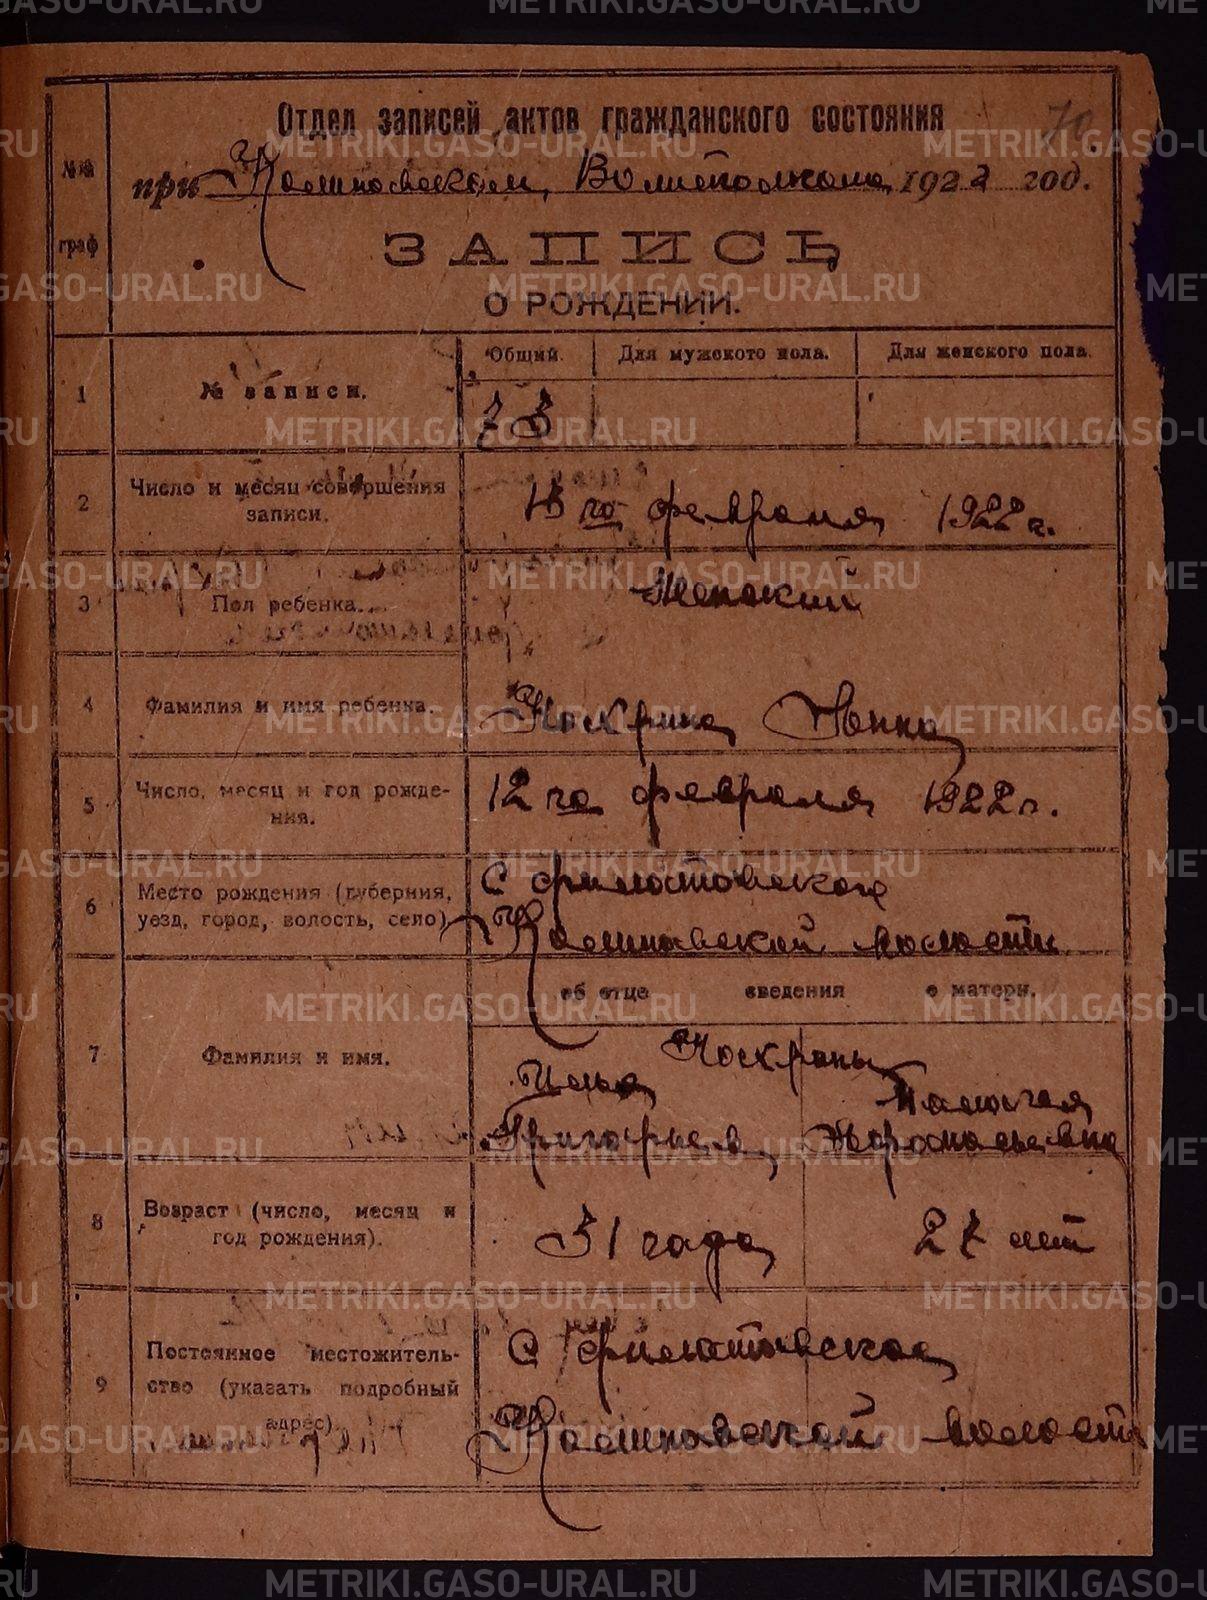 METRIKI.GASO-URAL.RU
Отдел записей актов гражданского состояния
70
№№ граф
при Калиновском Волисполкоме 1922 год.
ЗАПИСЬ
О РОЖДЕНИИ.
1
№ записи.
Общий.
Для мужского пола.
Для женского пола.
73
2
Число и месяц совершения
записи.
13 го февраля 1922 г.
3
Пол ребенка...
Женский
4
Фамилия и имя ребенка.
Нонна
5
Число, месяц и год рожде-
ния.
12 го февраля 1922 г.
6
Место рождения (губерния,
уезд, город, волость, село)
С Филатовское
волости
7
Фамилия и имя.
об отце сведения о матери.
Илья
Пелагея
Григорьев
8
Возраст (число, месяц и
год рождения).
31 года
27 лет
9
Постоянное местожитель-
ство (указать подробный
адрес)
С Филатовское
волости